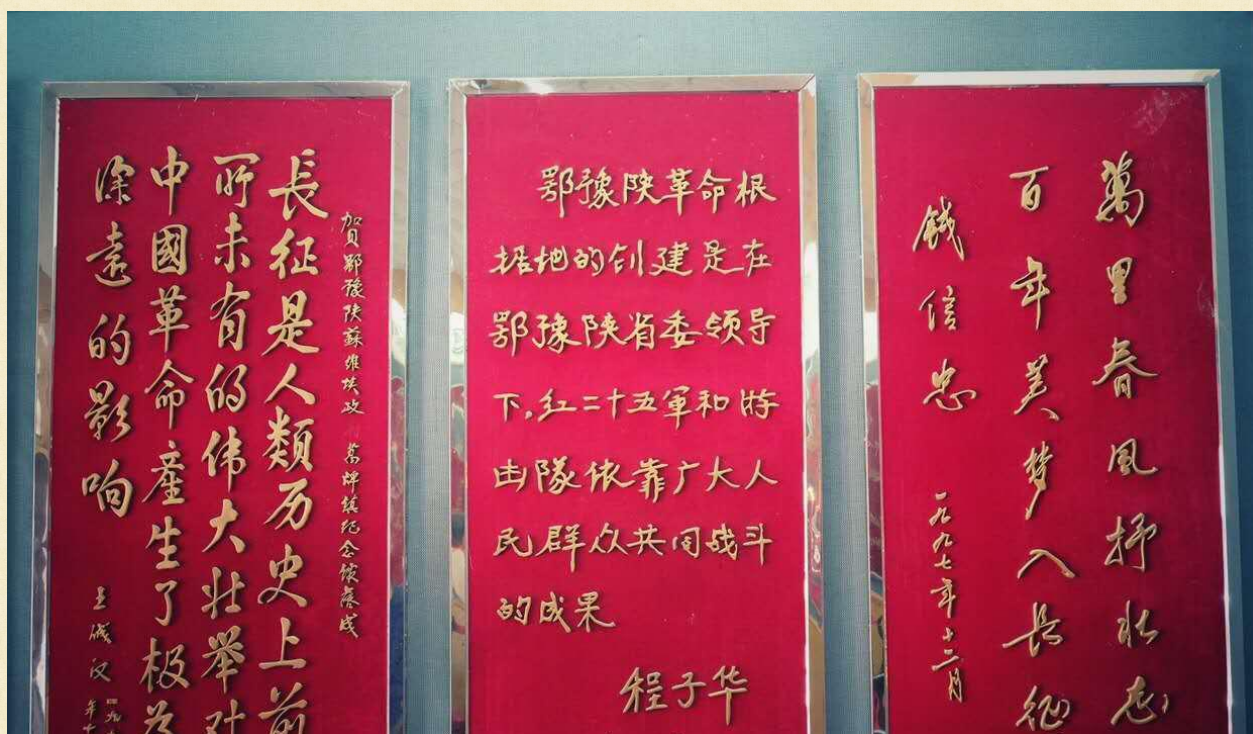 賀鄂豫陕蘇維埃政 葛牌镇纪念馆落成
長征是人類历史上前
所未有的伟大壮举对
中國革命產生了极为
深遠的影响
王诚汉
鄂豫陕革命根
据地的创建是在
鄂豫陕省委领导
下,红二十五軍和游
击隊依靠广大人
民群众共同战斗
的成果
程子华
萬里春風抒壮志
百年美梦入长征
錢信忠
一九九七年十二月